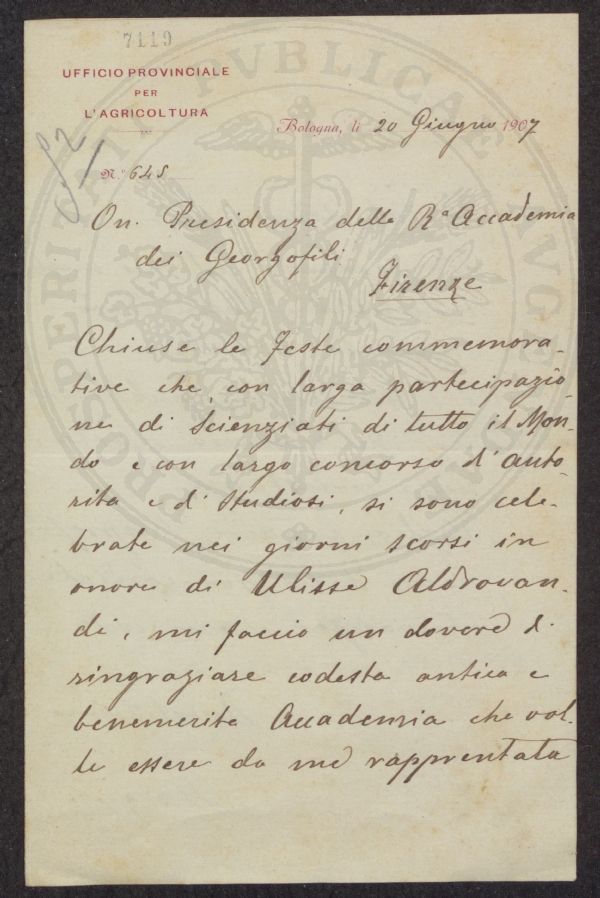 7119
UFFICIO PROVINCIALE
PER
L'AGRICOLTURA
Bologna, li 20 Giugno 1907
N.° 645
On. Presidenza della Rª Accademia
dei Georgofili
Firenze
Chiuse le feste commemora-
tive che, con larga partecipazio-
ne di Scienziati di tutto il Mon-
do e con largo concorso d'auto-
rità e d'Studiosi, si sono cele-
brate nei giorni scorsi in
onore di Ulisse Aldrovan-
di, mi faccio un dovere di
ringraziare codesta antica e
benemerita Accademia che vol-
le essere da me rapprentata
PROSPERITATI PVBLICAE AVGENDAE